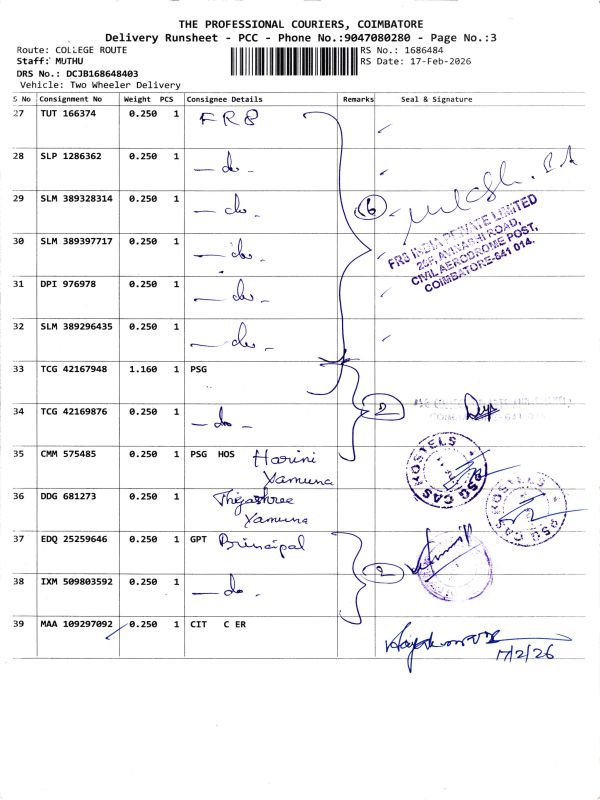 THE PROFESSIONAL COURIERS, COIMBATORE
Delivery Runsheet - PCC - Phone No.:9047080280 - Page No.:3
Route: COLLEGE ROUTE RS No.: 1686484
Staff: MUTHU RS Date: 17-Feb-2026
DRS No.: DCJB168648403
Vehicle: Two Wheeler Delivery
S No Consignment No Weight PCS Consignee Details Remarks Seal & Signature
27 TUT 166374 0.250 1 FR8
28 SLP 1286362 0.250 1 — do -
29 SLM 389328314 0.250 1 — do - 6
30 SLM 389397717 0.250 1 — do -
FR8 INDIA PRIVATE LIMITED
AVINASHI ROAD,
CIVIL AERODROME POST,
COIMBATORE-641 014.
31 DPI 976978 0.250 1 — do -
32 SLM 389296435 0.250 1 — do -
33 TCG 42167948 1.160 1 PSG
34 TCG 42169876 0.250 1 — do - 2
35 CMM 575485 0.250 1 PSG HOS Harini
Yamuna
PSG CAS HOSTELS
36 DDG 681273 0.250 1 Thejashree
Yamuna
PSG CAS HOSTELS
37 EDQ 25259646 0.250 1 GPT Principal
38 IXM 509803592 0.250 1 — do - 2
39 MAA 109297092 0.250 1 CIT C ER
17/2/26